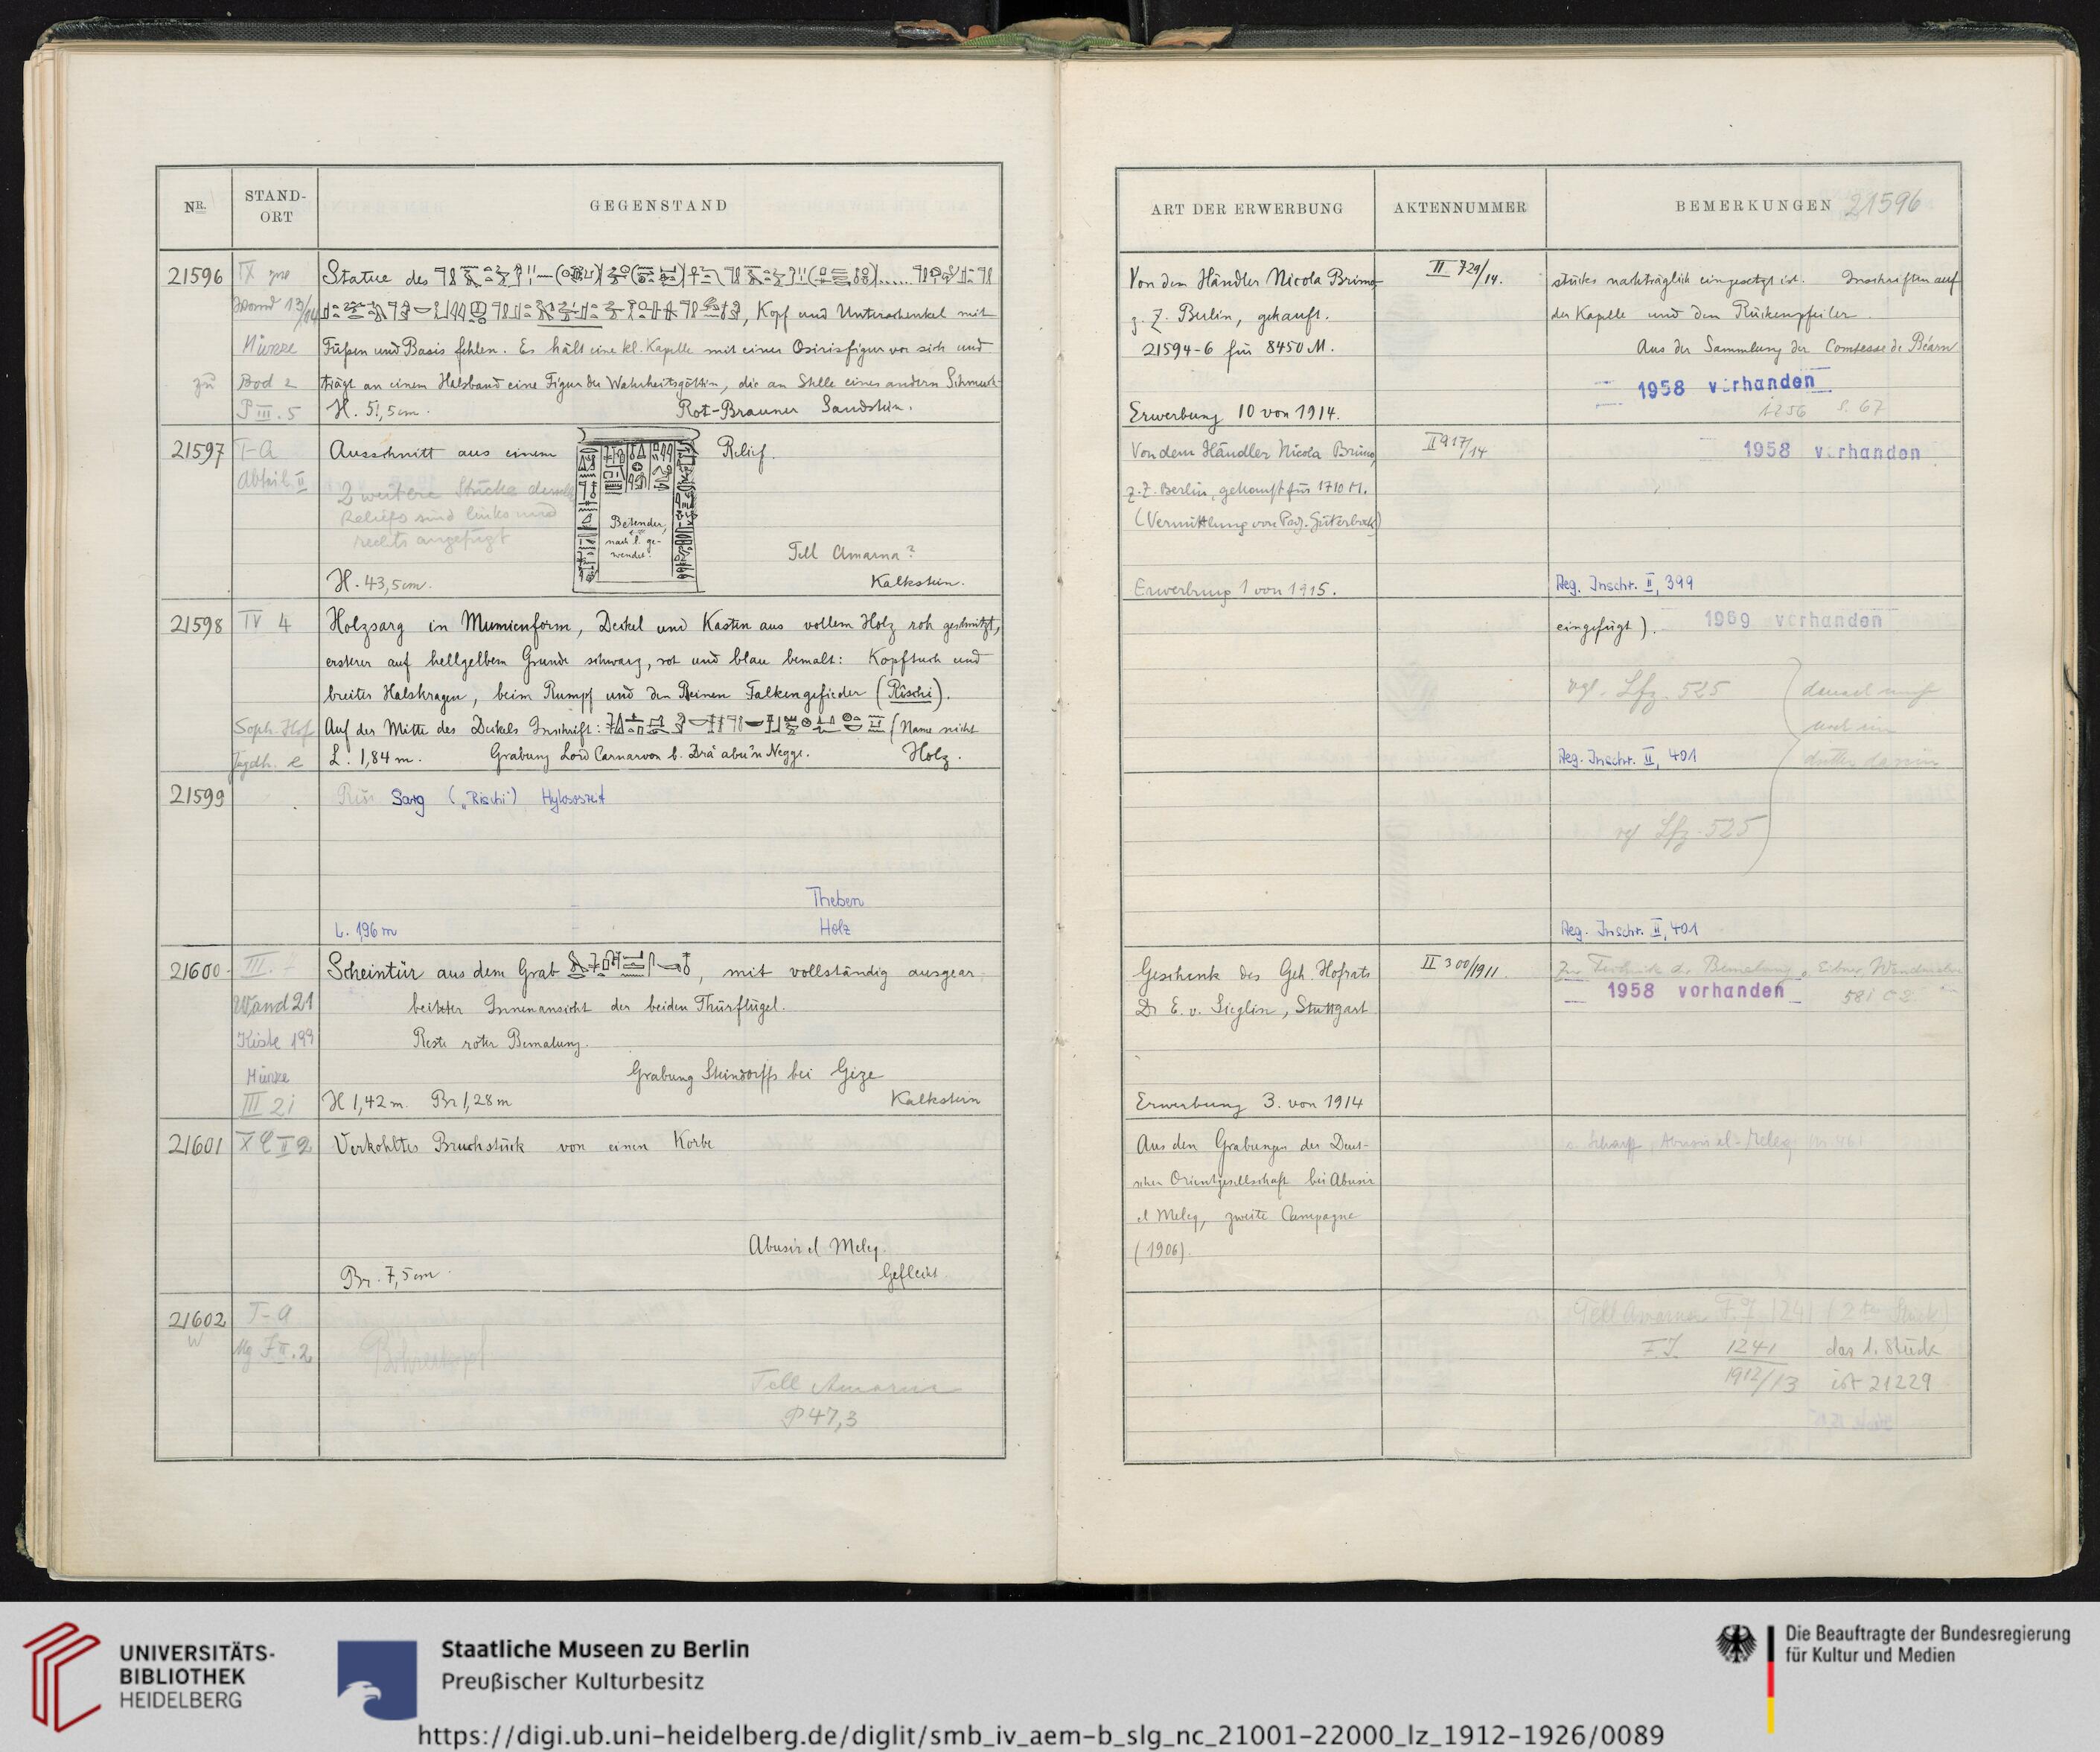 NR.
STAND-
ORT
GEGENSTAND
21596
Statue des
Kopf und Unterschenkel mit
Füßen und Basis fehlen. Es hält eine kl. Kapelle mit einer Osirisfigur vor sich und
trägt an einem Halsband eine Figur der Wahrheitsgöttin, die an Stelle eines andern Schmuck-
H. 51,5 cm. Rot-Brauner Sandstein.
Wand 13/14
Münze
zu Bod 2
P III. 5
21597
T-A
Abteil II
Ausschnitt aus einem Relief.
2 weitere Stücke
Reliefs sind links und
rechts angefügt
Betender,
nach l. ge-
wendet.
Tell Amarna?
H. 43,5 cm. Kalkstein.
21598
IV 4
Holzsarg in Mumienform, Deckel und Kasten aus vollem Holz roh geschnitzt,
ersterer auf hellgelbem Grunde schwarz, rot und blau bemalt: Kopftuch und
breiter Halskragen, beim Rumpf und den Beinen Falkengefieder (Rischi).
Soph. Hof
Auf der Mitte des Deckels Inschrift: (Name nicht
L. 1,84 m. Grabung Lord Carnarvon b. Dra abu'n Negge. Holz.
21599
Sarg („Rischi") Hyksoszeit
Theben
L. 1,96 m Holz
21600
III.
Wand 21
Kiste 199
Münze
III 2i
Scheintür aus dem Grab , mit vollständig ausgear
beiteter Innenansicht der beiden Thürflügel.
Reste roter Bemalung.
Grabung Steindorffs bei Gize
H 1,42 m. Br 1,28 m Kalkstein
21601
Verkohltes Bruchstück von einem Korbe
Abusir el Meleq.
Br. 7,5 cm. Geflecht
21602
T-A
Tell Amarna
P 47,3
ART DER ERWERBUNG
AKTENNUMMER
BEMERKUNGEN 21596
Von dem Händler Nicola Brimo
z. Z. Berlin, gekauft.
21594-6 für 8450 M.
Erwerbung 10 von 1914.
II 729/14.
stückes nachträglich eingesetzt ist. Inschriften auf
der Kapelle und dem Rückenpfeiler.
Aus der Sammlung der Comtesse de Béarn
1958 vorhanden
1256 S. 67
Von dem Händler Nicola Brimo,
z. Z. Berlin, gekauft für 1710 M.
(Vermittlung von Güterbock)
Erwerbung 1 von 1915.
II 917/14
1958 vorhanden
Reg. Inschr. II, 399
eingefügt). 1969 vorhanden
vgl. Lfz. 525
Reg. Inschr. II, 401
vgl Lfz. 525
Reg. Inschr. II, 401
Geschenk des Geh. Hofrats
Dr E. v. Sieglin, Stuttgart
Erwerbung 3. von 1914
II 300/1911.
Zur Technik d. Bemalung
1958 vorhanden
Aus den Grabungen der Deut-
schen Orientgesellschaft bei Abusir
el Meleq, zweite Campagne
(1906).
Scharff, Abusir el-Meleq
Tell Amarna F. J. 1241 (2 tes Stück)
F.J. 1241
1912/13
das 1. Stück
ist 21229
UNIVERSITÄTS-
BIBLIOTHEK
HEIDELBERG
Staatliche Museen zu Berlin
Preußischer Kulturbesitz
Die Beauftragte der Bundesregierung
für Kultur und Medien
https://digi.ub.uni-heidelberg.de/diglit/smb_iv_aem-b_slg_nc_21001-22000_lz_1912-1926/0089